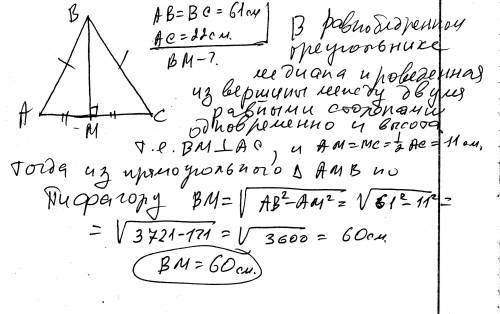 B
AB=BC=61см
AC=22см.
BM-?
A
M
C
В равнобедренной
треугольнике
медиана проведенная
из вершины между двумя
равными сторонами
одновременно и высота
т.е. BM⊥AC, и AM=MC=½AC=11см,
Тогда из прямоугольного Δ AMB по
Пифагору BM=√AB²-AM²=√61²-11²=
=√3721-121=√3600=60см.
BM=60см.